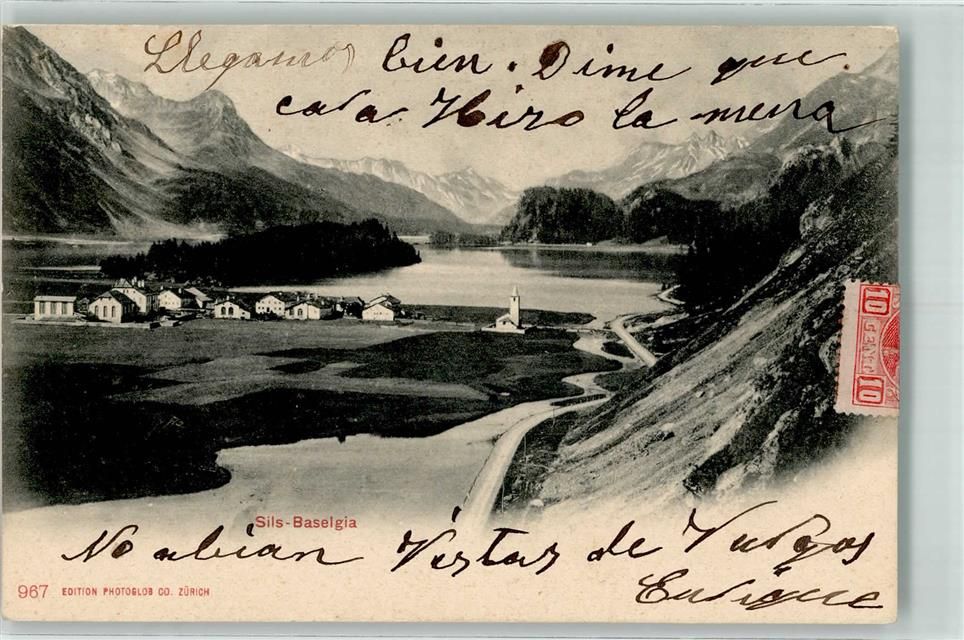 Llegamos bien. Dime que
cada Hizo la mena
10
CENT
10
Sils-Baselgia
No abian Vistas de Vulgos
967 EDITION PHOTOGLOB CO. ZÜRICH
Enrique